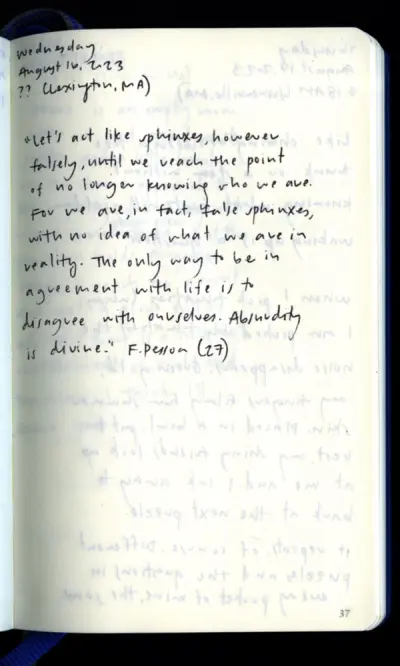 Wednesday
August 16, 2023
?? (Lexington, MA)
"Let's act like sphinxes, however
falsely, until we reach the point
of no longer knowing who we are.
For we are, in fact, false sphinxes,
with no idea of what we are in
reality. The only way to be in
agreement with life is to
disagree with ourselves. Absurdity
is divine." F. Pessoa (27)
37